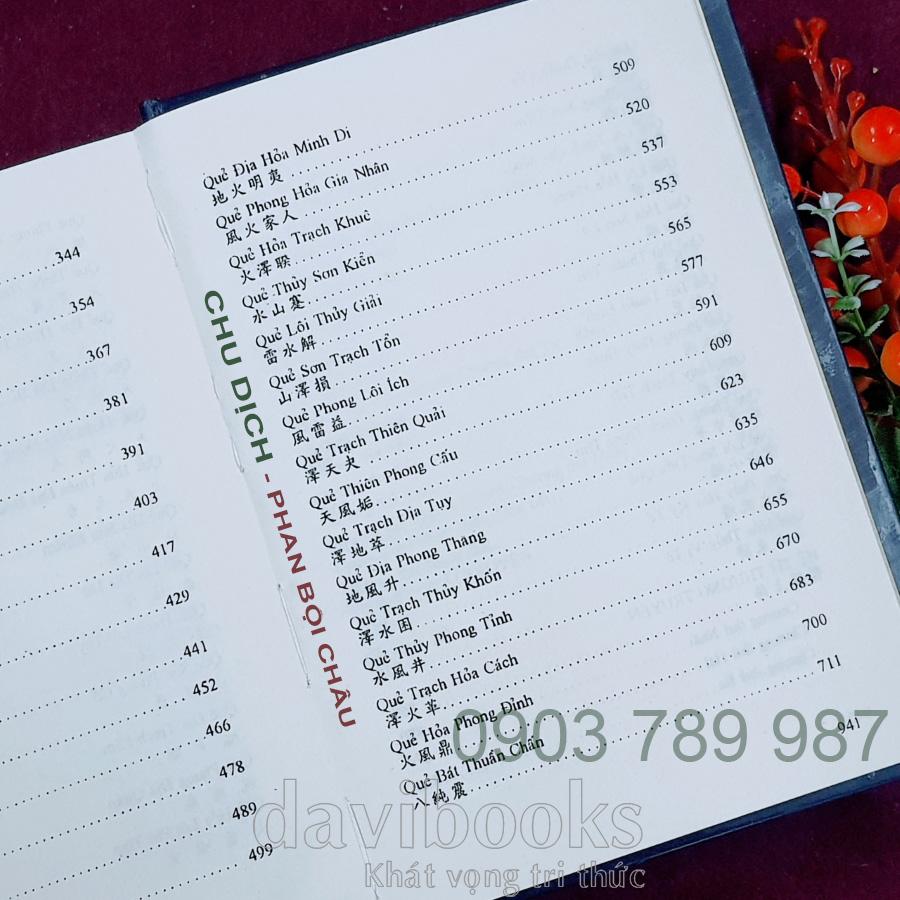 344
354
367
381
391
403
417
429
441
452
466
478
489
499
Quẻ Địa Hỏa Minh Di
地火明夷 ........ 509
Quẻ Phong Hỏa Gia Nhân
風火家人 ........ 520
Quẻ Hỏa Trạch Khuê
火澤睽 ........ 537
Quẻ Thủy Sơn Kiển
水山蹇 ........ 553
Quẻ Lôi Thủy Giải
雷水解 ........ 565
Quẻ Sơn Trạch Tổn
山澤損 ........ 577
Quẻ Phong Lôi Ích
風雷益 ........ 591
Quẻ Trạch Thiên Quải
澤天夬 ........ 609
Quẻ Thiên Phong Cấu
天風姤 ........ 623
Quẻ Trạch Địa Tụy
澤地萃 ........ 635
Quẻ Địa Phong Thăng
地風升 ........ 646
Quẻ Trạch Thủy Khốn
澤水困 ........ 655
Quẻ Thủy Phong Tỉnh
水風井 ........ 670
Quẻ Trạch Hỏa Cách
澤火革 ........ 683
Quẻ Hỏa Phong Đỉnh
火風鼎 ........ 700
Quẻ Bát Thuần Chấn
八純震 ........ 711
941
CHU DỊCH - PHAN BỘI CHÂU
0903 789 987
davibooks
Khát vọng tri thức